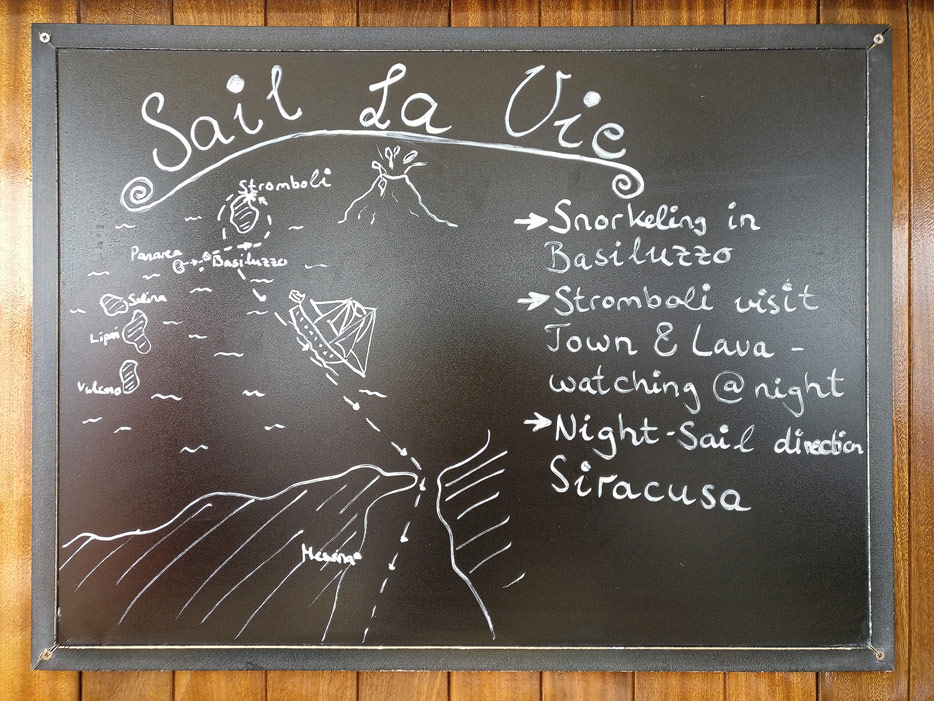 Sail La Vie
Stromboli
Panarea
Basiluzzo
Salina
Lipari
Vulcano
Messina
→ Snorkeling in
Basiluzzo
→ Stromboli visit
Town & Lava -
watching @ night
→ Night-Sail direction
Siracusa